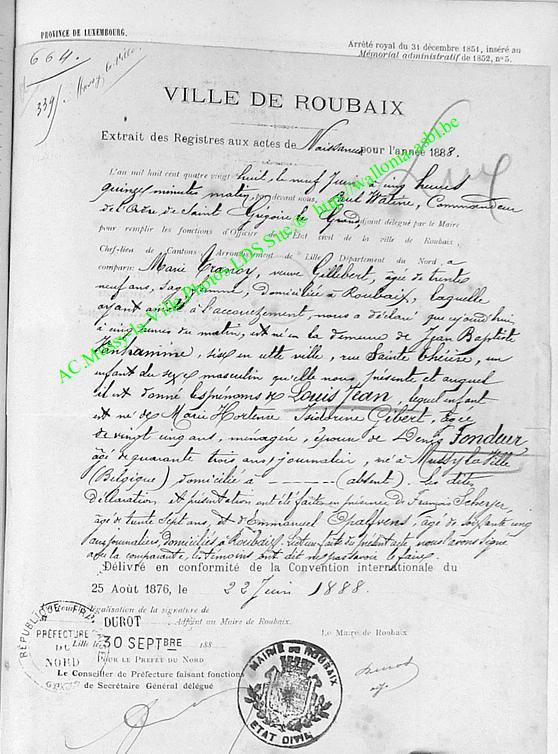 PROVINCE DE LUXEMBOURG.
Arrêté royal du 31 décembre 1851, inséré au
Mémorial administratif de 1852, n° 5.
664.
339
Mussy la Ville.
VILLE DE ROUBAIX
Extrait des Registres aux actes de Naissances pour l'année 1888.
Lux
L'an mil huit cent quatre vingt huit, le neuf Juin à cinq heures
quinze minutes matin, par devant nous, Paul Watine, Commandeur
de l'Ordre de Saint Grégoire le Grand, Adjoint délégué par le Maire
pour remplir les fonctions d'Officier de l'État civil de la ville de Roubaix,
Chef-lieu de Cantons, Arrondissement de Lille, Département du Nord, a
comparu Marie Tranoy, veuve Gillebert, âgée de trente
neuf ans, sage femme, domiciliée à Roubaix, laquelle
ayant assisté à l'accouchement, nous a déclaré que aujourd'hui
à cinq heures du matin, est né en la demeure de Jean Baptiste
sise en cette ville, rue Sainte un
enfant du sexe masculin qu'elle nous présente et auquel
il est donné les prénoms de Louis Jean, lequel enfant
est né de Marie Hortense Isidorine Gibert, âgée
de vingt cinq ans, ménagère, épouse de Denis Fondeur
âgé de quarante trois ans, journalier, né à Mussy la Ville
(Belgique) domicilié à (absent). Les dites
déclaration et présentation ont été faites en présence de François Scheyer,
âgé de trente sept ans, et d'Emmanuel âgé de cinq
ans, journaliers, domiciliés à Roubaix. Lecture faite du présent acte, nous l'avons signé
avec la comparante, les témoins ont dit ne pas savoir le faire.
Délivré en conformité de la Convention internationale du
25 Août 1876, le 22 Juin 1888.
légalisation de la signature de
M. DUROT Adjoint au Maire de Roubaix.
Le Maire de Roubaix
Lille le 30 SEPTBRE 188
POUR LE PRÉFET DU NORD
Le Conseiller de Préfecture faisant fonctions
de Secrétaire Général délégué
RÉPUBLIQUE FRANÇAISE
PRÉFECTURE
DU
NORD
MAIRIE DE ROUBAIX
ÉTAT CIVIL
Durot
AC.Mussy-la-Ville Photo LDS Site @ http://wallonia-asbl.be